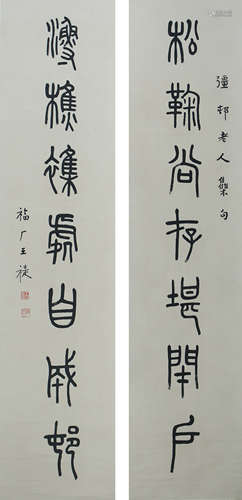 松鞠尚存堪閉戶
彊邨老人集句
漁樵雜處自成邨
福厂王禔